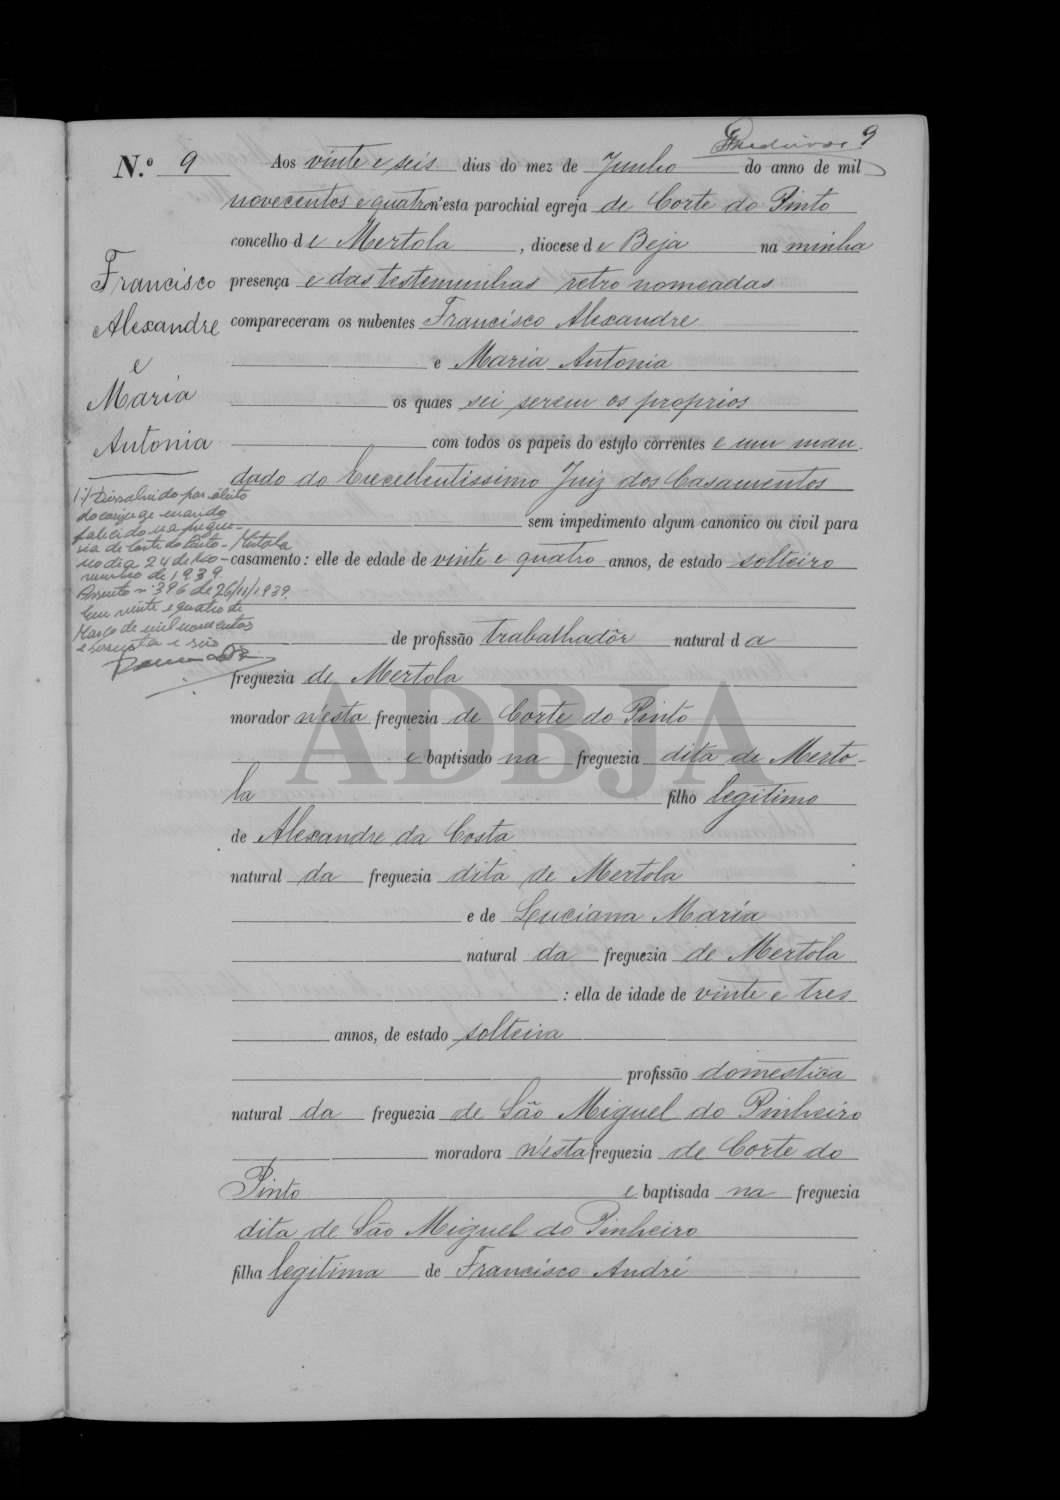 9
N.º 9
Aos vinte e seis dias do mez de Junho do anno de mil
novecentos e quatro n'esta parochial egreja de Corte do Pinto
concelho de Mertola, diocese de Beja na minha
presença e das testemunhas retro nomeadas
compareceram os nubentes Francisco Alexandre
e Maria Antonia
os quaes sei serem os proprios
com todos os papeis do estylo correntes e um man-
dado do Excellentissimo Juiz dos Casamentos
sem impedimento algum canonico ou civil para
casamento: elle de edade de vinte e quatro annos, de estado solteiro
de profissão trabalhador natural da
freguezia de Mertola
morador n'esta freguezia de Corte do Pinto
e baptisado na freguezia dita de Merto-
la filho legitimo
de Alexandre da Costa
natural da freguezia dita de Mertola
e de Luciana Maria
natural da freguezia de Mertola
: ella de idade de vinte e tres
annos, de estado solteira
profissão domestica
natural da freguezia de São Miguel do Pinheiro
moradora n'esta freguezia de Corte do
Pinto e baptisada na freguezia
dita de São Miguel do Pinheiro
filha legitima de Francisco André
Francisco
Alexandre
e
Maria
Antonia
1) Dissolvido por óbito
do conjuge marido
falecido na fregue-
sia de Corte do Pinto - Mertola
no dia 24 de No-
vembro de 1939
Assento nº 396 de 26/11/1939.
Em vinte e quatro de
Março de mil novecentos
e sessenta e seis
ADBJA